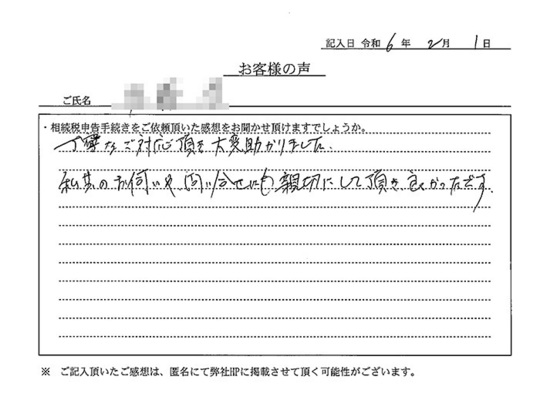 記入日 令和 6 年 2 月 1 日
お客様の声
ご氏名
・相続税申告手続きをご依頼頂いた感想をお聞かせ頂けますでしょうか。
丁寧なご対応頂き大変助かりました。
私共のお伺いや問い合せにも親切にして頂き良かったです。
※ ご記入頂いたご感想は、匿名にて弊社HPに掲載させて頂く可能性がございます。